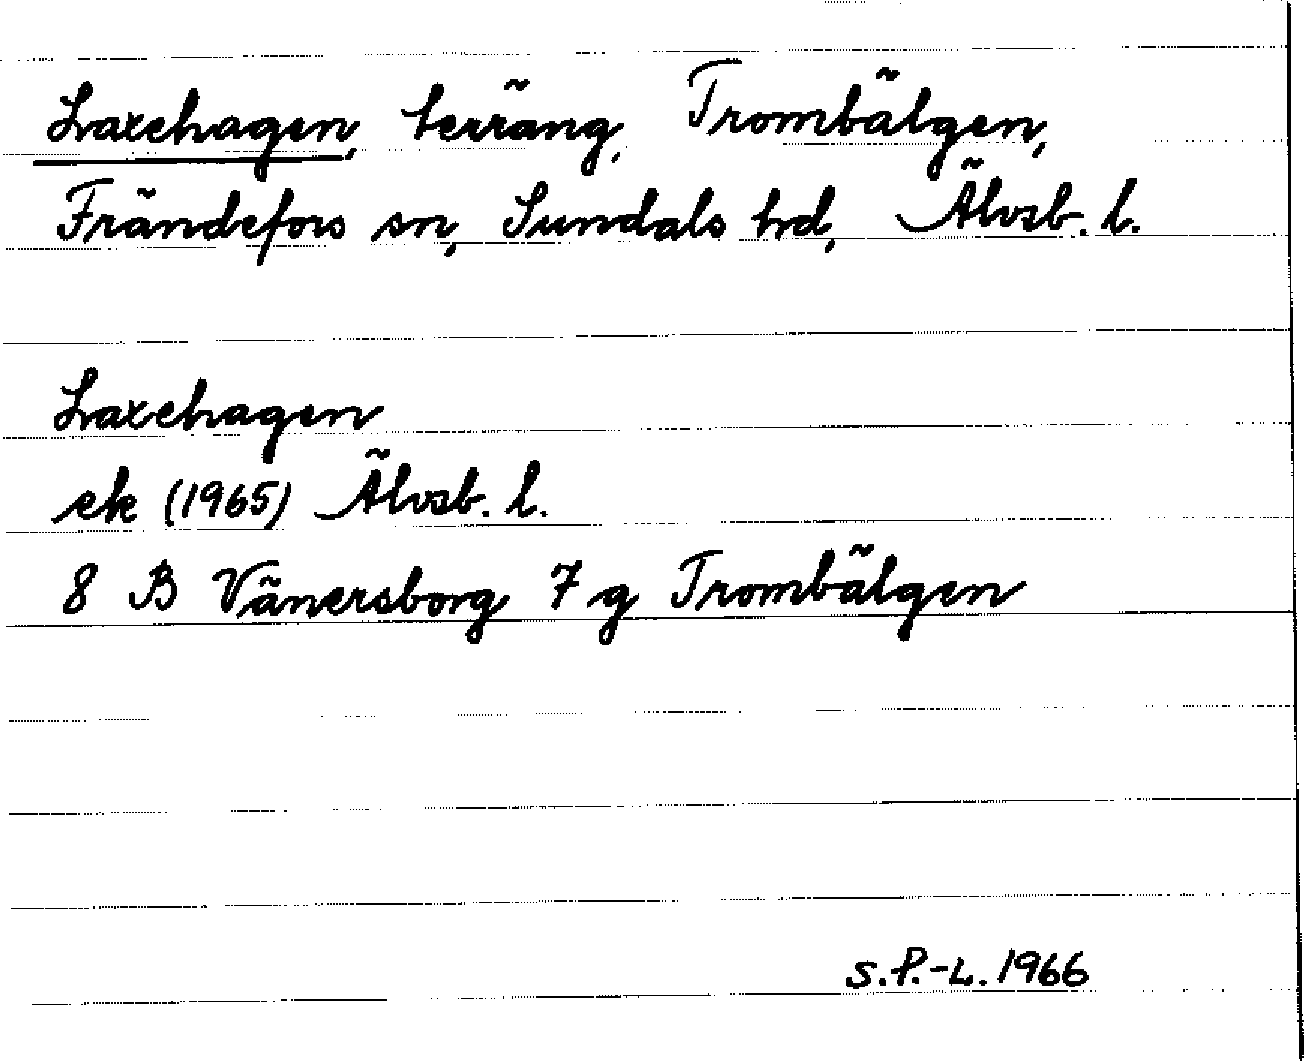 Laxehagen, terräng, Trombälgen,
Frändefors sn, Sundals hd, Älvsb. l.
Laxehagen
ek (1965) Älvsb. l.
8 B Vänersborg 7 g Trombälgen
S.P.-L. 1966